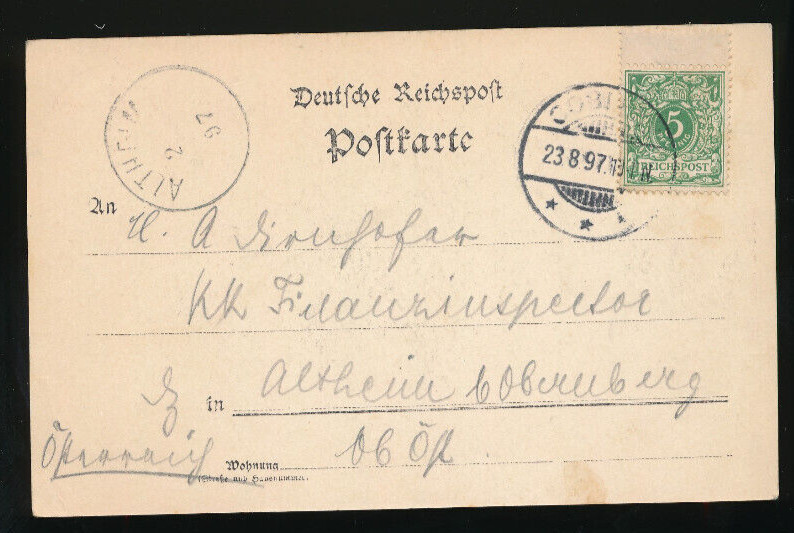 Deutsche Reichspost
Postkarte
ALTHEIM
97
23 8 97
5
REICHSPOST
An H. A
KK Finanzinspector
in Altheim b Obernberg
Ob Öst
Österreich
Wohnung
(Straße und Hausnummer)